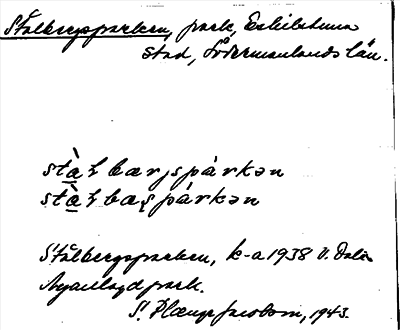 Stålbergsparken, park, Eskilstuna
stad, Södermanlands län.
stà̱ɫbærjspárkən
stà̱ɫbæʂpárkən
Stålbergsparken, k-a 1938 V. Dala
Nyanlagd park.
S. 1943.